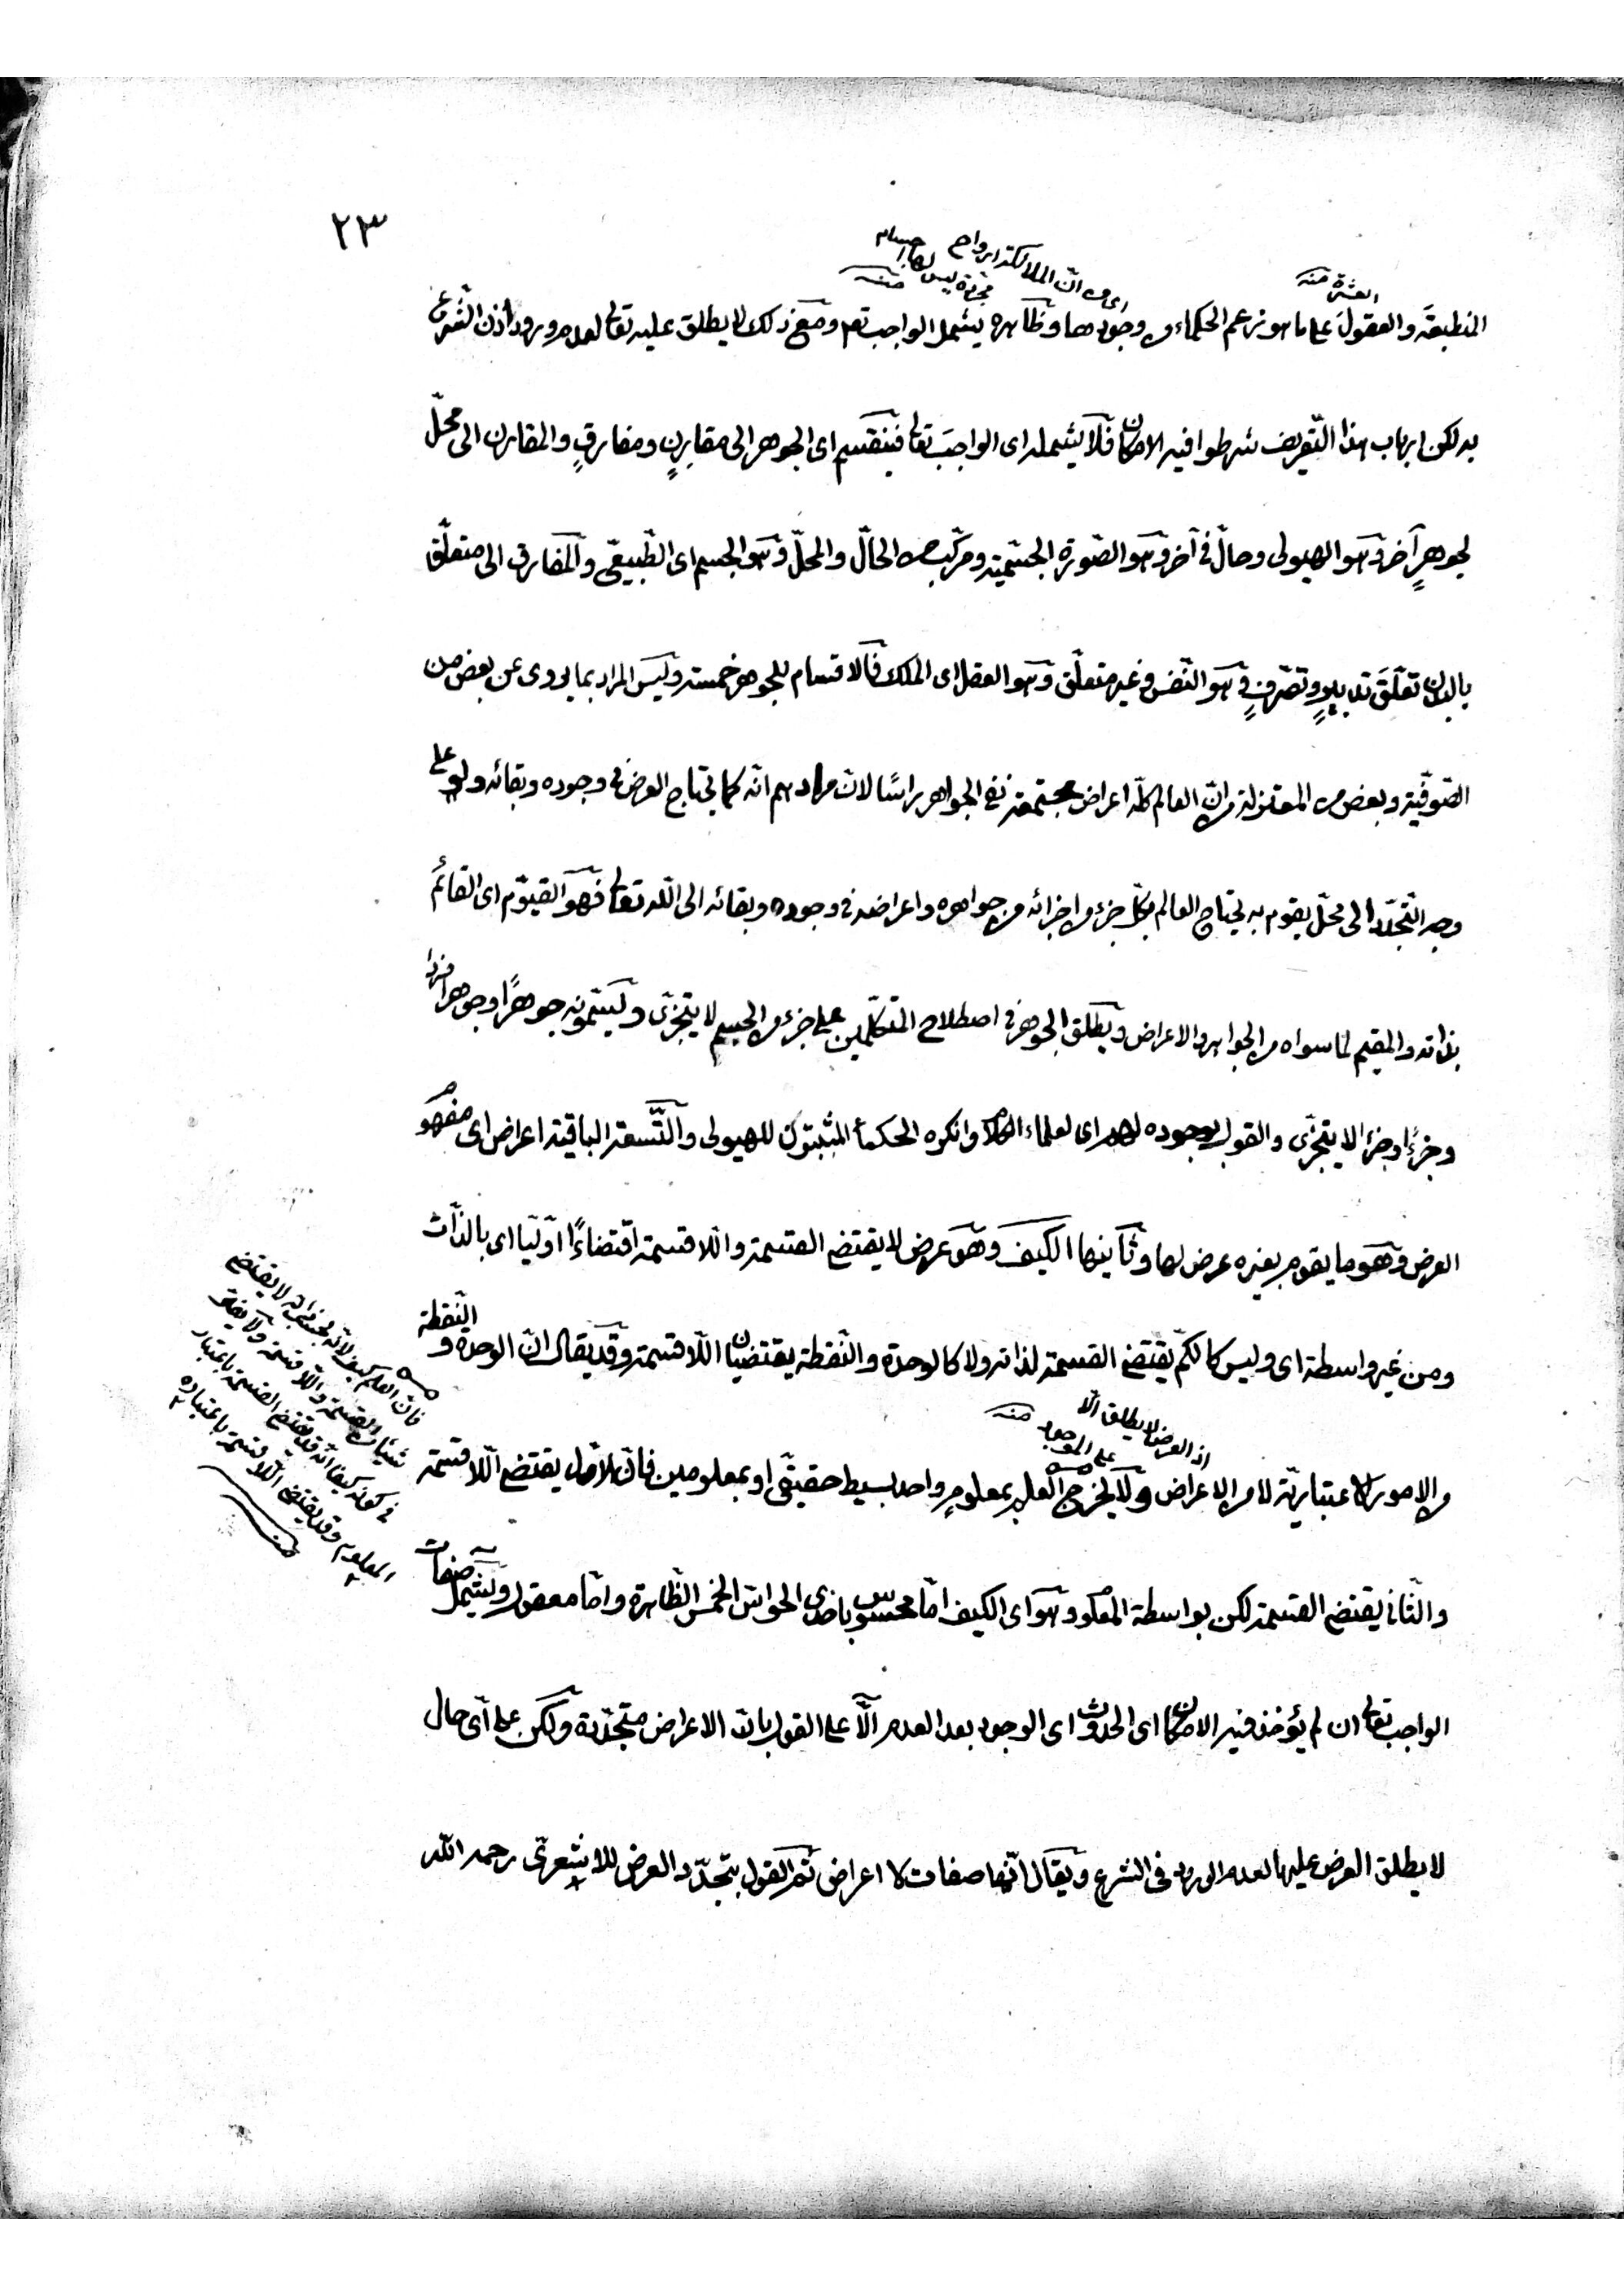 ٢٣
العشرة منه
اى من ان الملائكة ارواح
مجردة ليس لها اجسام
منه
المنطبقة والعقول على ما هو زعم الحكماء من وجودها وظاهره يشمل الواجب تعم ومع ذلك لا يطلق عليه تعالى لعدم ورود اذن الشرع
به لكن ارباب هذا التعريف شرطوا فيه الامكان فلا يشمله اى الواجب تعالى فينقسم اى الجوهر الى مقارنٍ ومفارقٍ والمقارن الى محلّ
لجوهرٍ آخر وهو الهيولى وحالّ فى آخر وهو الصّورة الجسميّة ومركّب من الحالّ والمحلّ وهو الجسم اى الطّبيعى والمفارق الى متعلّق
بالبدن تعلّق تدبيرٍ وتصرّفٍ وهو النّفس وغير متعلّق وهو العقل اى الملك فالاقسام للجوهر خمسة وليس المراد بما يروى عن بعض من
الصّوفيّة وبعض من المعتزلة من انّ العالم كلّه اعراض مجتمعة نفى الجواهر راسًا لانّ مرادهم انّه كما يحتاج العرض فى وجوده وبقائه ولو على
وجه التّجدّد الى محلّ يقوم به يحتاج العالم بكلّ جزء من اجزائه من جواهره واعراضه فى وجوده وبقائه الى اللّه تعالى فهو القيّوم اى القائم
بذاته والمقيم لما سواه من الجواهر والاعراض ويطلق الجوهر فى اصطلاح المتكلّمين على جزء من الجسم لا يتجزّى ويسمّونه جوهرًا وجوهرا فردا
وجزءًا وجزءا لا يتجزّى والقول بوجوده لهم اى لعلماء الكلام وانكره الحكماء المثبتون للهيولى والتّسعة الباقية اعراض اى مفهوم
العرض وهو ما يقوم بغيره عرض لها وثانيها الكيف وهو عرض لا يقتضى القسمة واللاقسمة اقتضاءًا اوّليا اى بالذّات
ومن غير واسطة اى وليس كالكمّ يقتضى القسمة لذاته ولا كالوحدة والنّقطة يقتضيان اللّاقسمة وقد يقال انّ الوحدة والنّقطة
اذ العرض لا يطلق الّا
على الموجود منه
من الامور الاعتباريّة لا من الاعراض ولا يخرج العلم بمعلومٍ واحد بسيط حقيقى او بمعلومين فانّ الاوّل يقتضى اللّاقسمة
والثّانى يقتضى القسمة لكن بواسطة المعلوم وهو اى الكيف امّا محسوس باحدى الحواسّ الخمس الظّاهرة وامّا معقول ويشمل صفات
الواجب تعالى ان لم يؤخذ فيه الامكان اى الحدوث اى الوجود بعد العدم الّا على القول بانّ الاعراض متجدّدة ولكن على اىّ حال
لا يطلق العرض عليها لعدم الورود فى الشرع ويقال انّها صفات لا اعراض ثم القول بتجدّد العرض للاشعرىّ رحمه اللّه
فانّ العلم كيف لانّه بحسب ذاته لا يقتضى
شيئا من القسمة واللّاقسمة ولا
فى كونه كيفا انّه قد يقتضى القسمة باعتبار
المعلوم وقد يقتضى اللّاقسمة باعتباره
منه